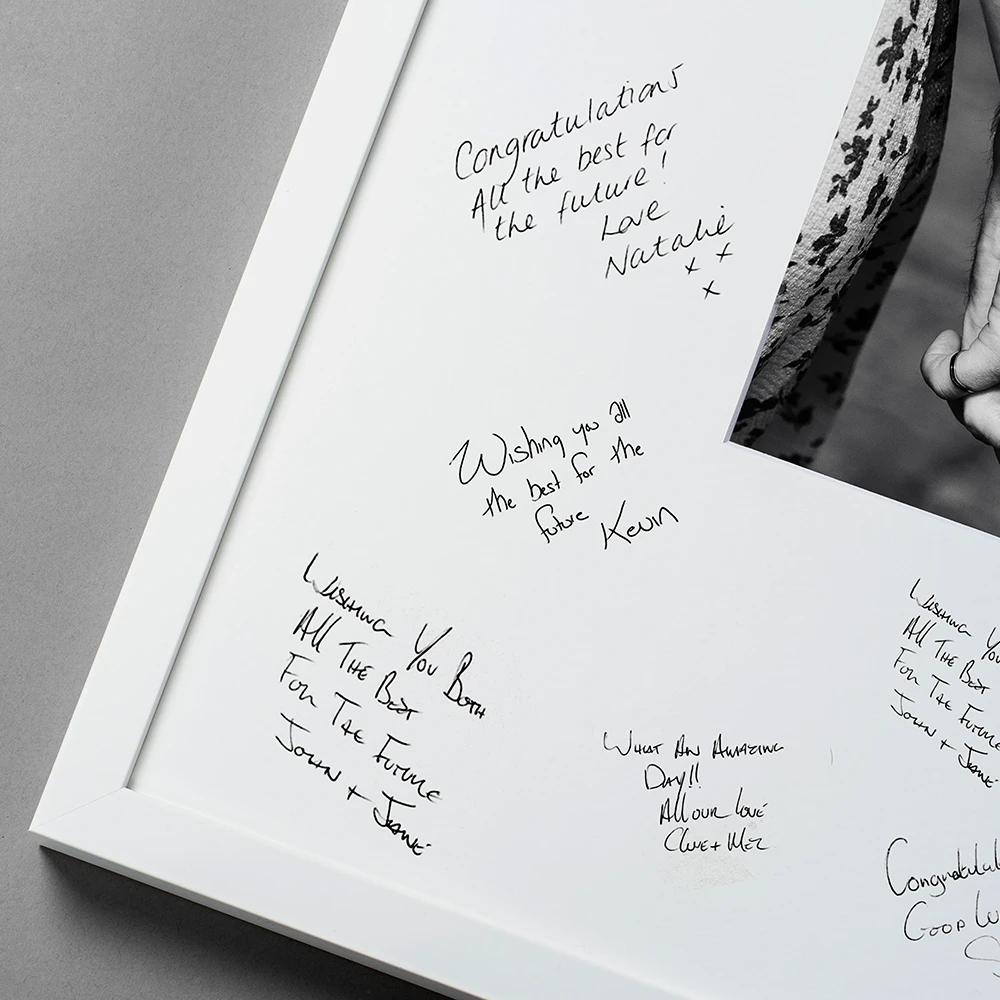 Congratulations
All the best for
the future!
Love
Natalie
x x
x
Wishing you all
the best for the
future Kevin
WISHING YOU BOTH
All THE BEST
FOR THE FUTURE
JOHN + JEANE
WISHING YO
All THE BEST
FOR THE FUTURE
JOHN + JEANE
WHAT AN AMAZING
DAY!!
All our love
Clive + Mez
Congratulat
GOOD LU
S